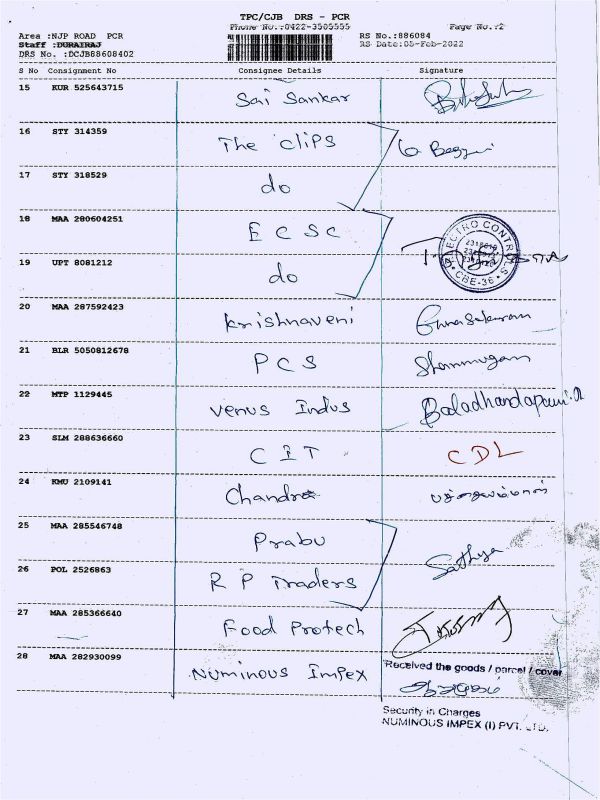 TPC/CJB DRS - PCR
Phone No.:0422-3505555 Page No.:2
Area :NJP ROAD PCR RS No.:886084
Staff :DURAIRAJ RS Date:05-Feb-2022
DRS No. :DCJB88608402
S No Consignment No Consignee Details Signature
15 KUR 525643715 Sai Sankar
16 STY 314359 The clips
17 STY 318529 do
18 MAA 280604251 E C S C
ELECTRO CONTROLS
CBE-36
19 UPT 8081212 do
20 MAA 287592423 Krishnaveni Gunasekaran
21 BLR 5050812678 P C S Shanmugam
22 MTP 1129445 Venus Indus Baladhandapani.R
23 SLM 288636660 C I T CDL
24 KMU 2109141 Chandra
25 MAA 285546748 Prabu
Sathya
26 POL 2526863 R P Traders
27 MAA 285366640 Food Protech
28 MAA 282930099 Numinous Impex
Received the goods / parcel / cover
Security in Charges
NUMINOUS IMPEX (I) PVT. LTD.